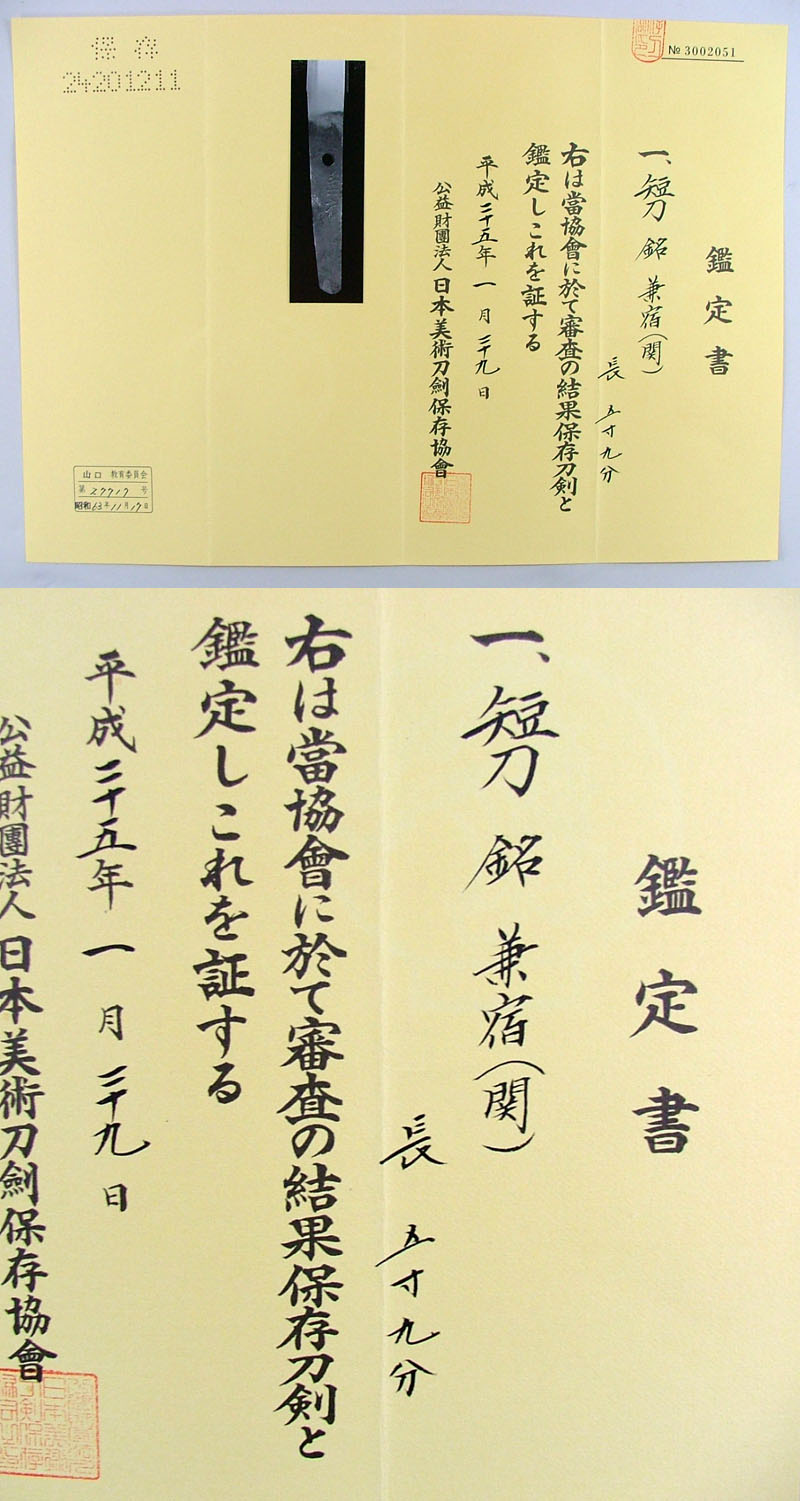 № 3002051
鑑定書
一、短刀 銘 兼宿(関)
長 五寸九分
右は當協會に於て審査の結果保存刀剣と
鑑定しこれを証する
平成二十五年 一月 二十九日
公益財團法人 日本美術刀劍保存協會
保存
24201211
山口 教育委員会
第 27717 号
昭和63年11月17日
鑑定書
一、短刀 銘 兼宿(関)
長 五寸九分
右は當協會に於て審査の結果保存刀剣と
鑑定しこれを証する
平成二十五年 一月 二十九日
公益財團法人 日本美術刀劍保存協會